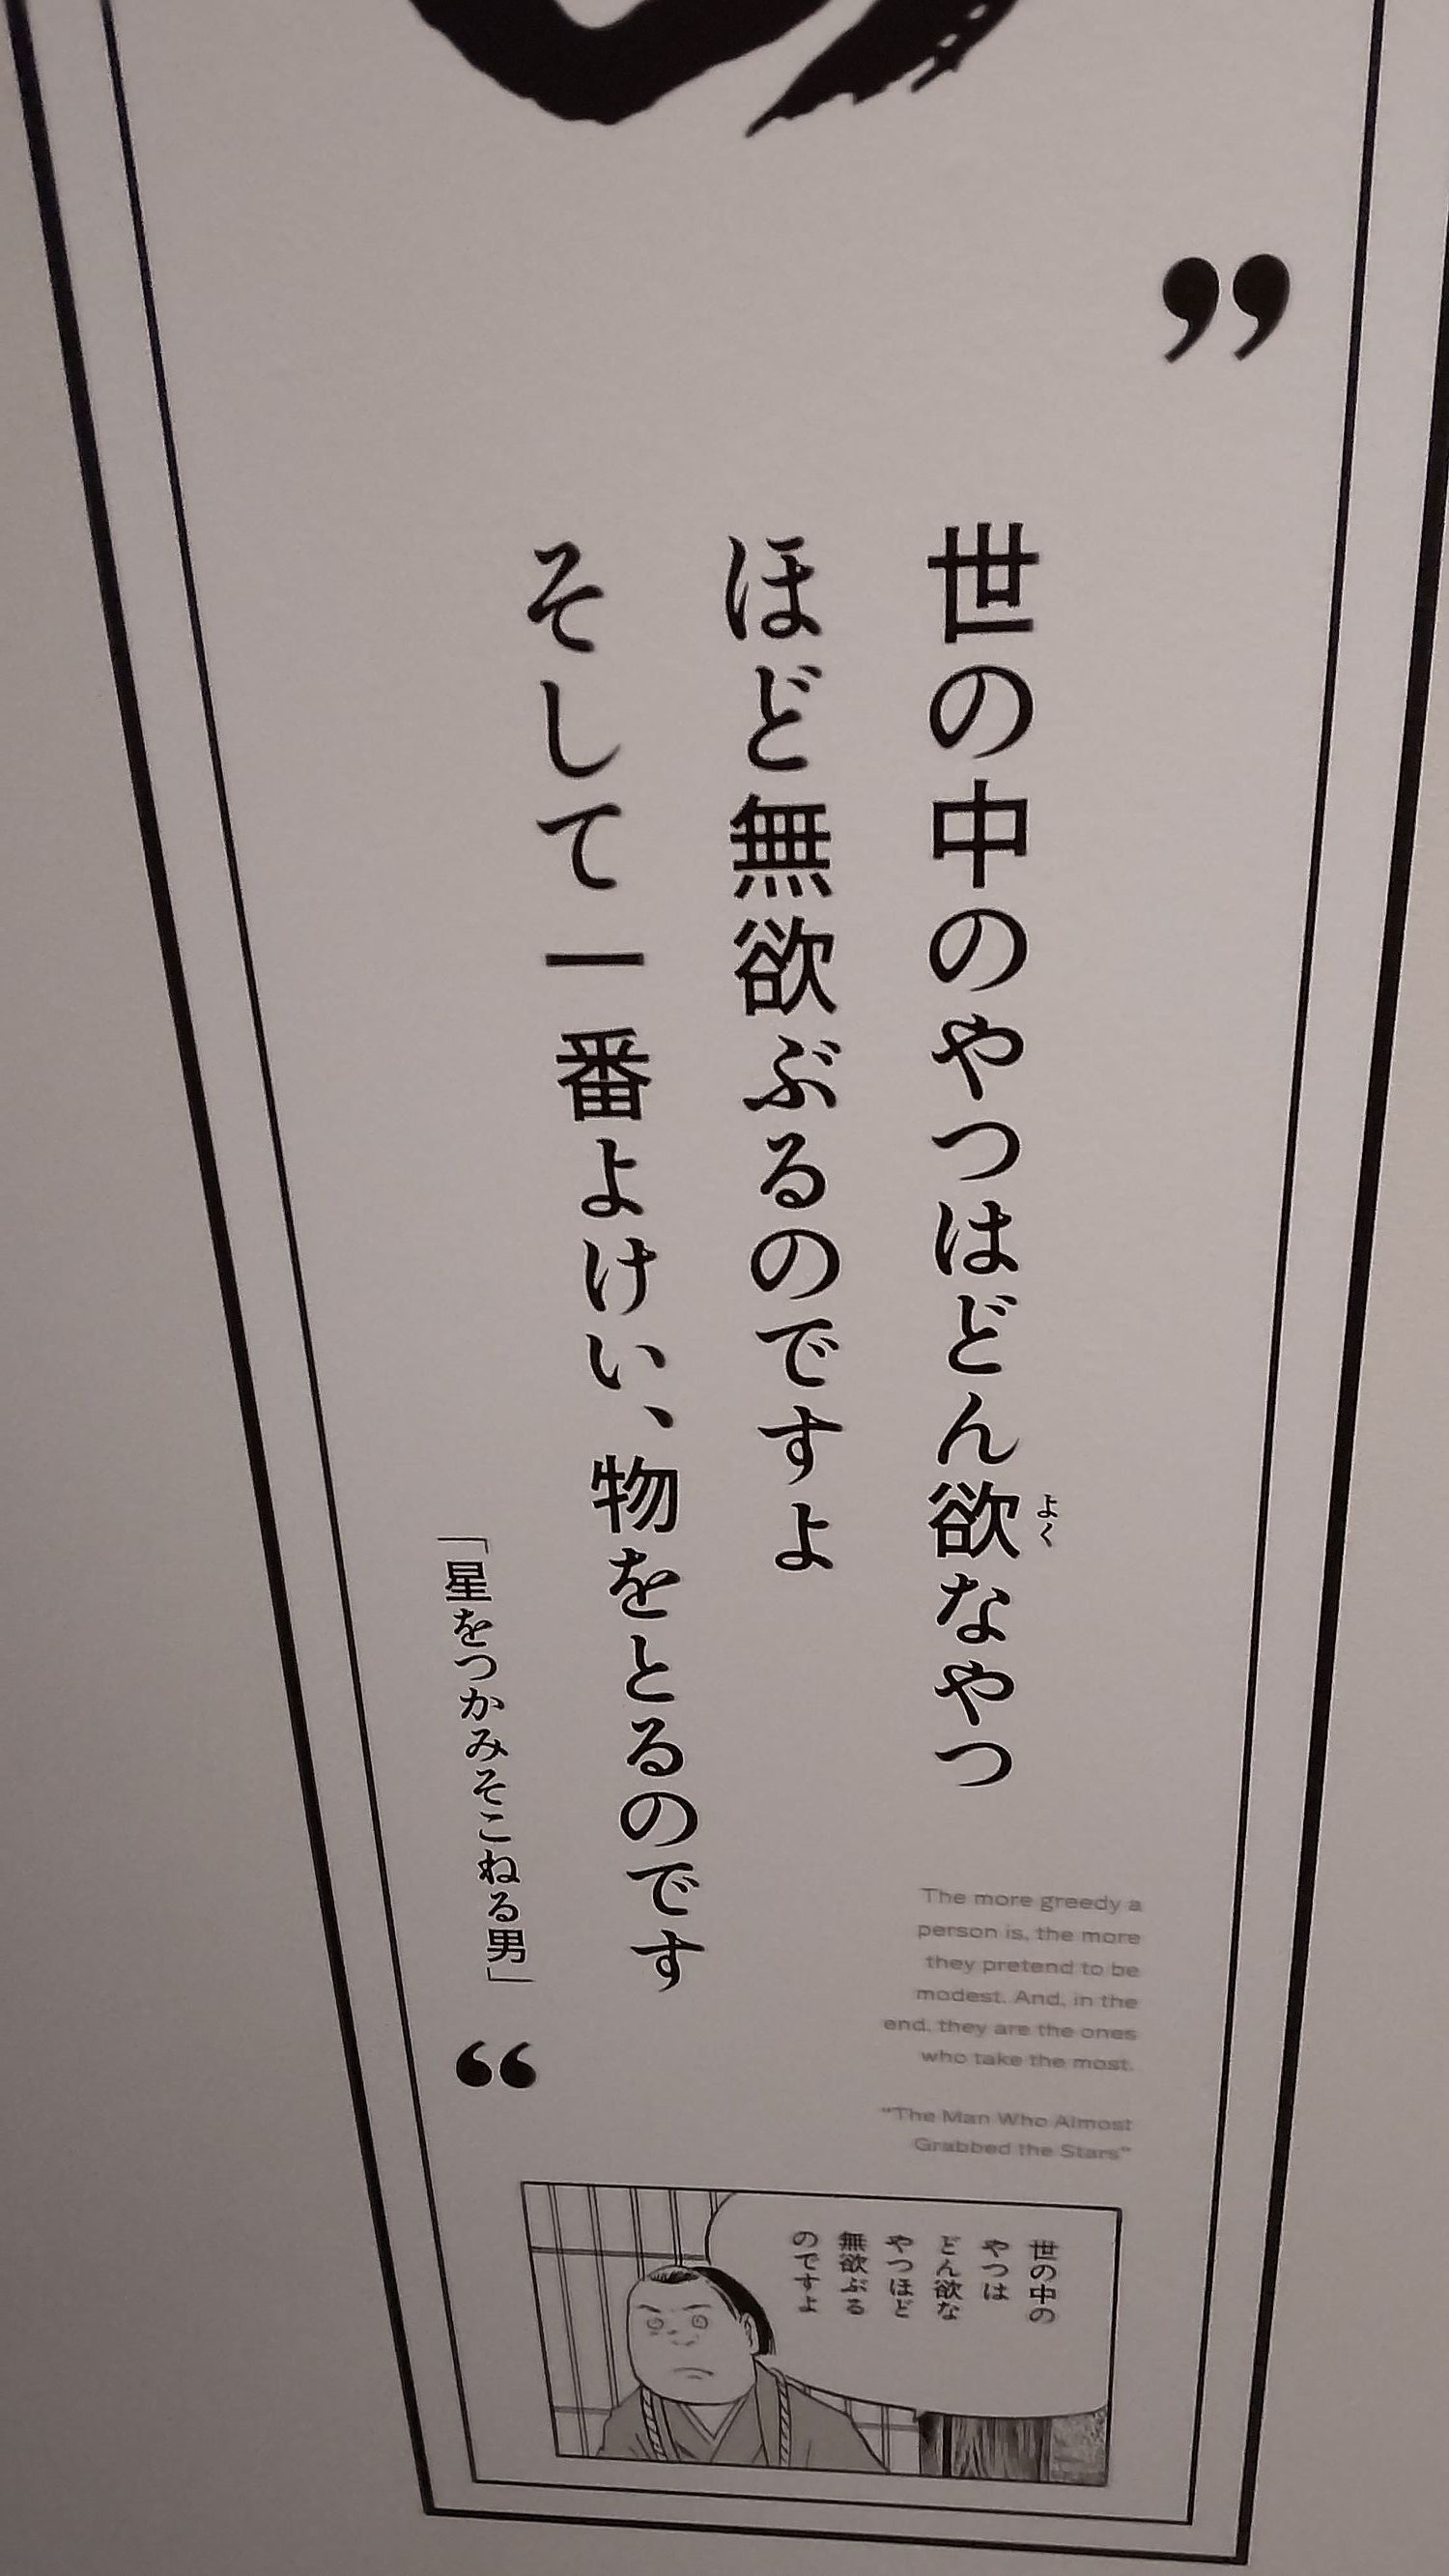 ”
世の中のやつはどん欲なやつ
よく
ほど無欲ぶるのですよ
そして一番よけい、物をとるのです
「星をつかみそこねる男」
“
The more greedy a
person is, the more
they pretend to be
modest. And, in the
end, they are the ones
who take the most.
"The Man Who Almost
Grabbed the Stars"
世の中の
やつは
どん欲な
やつほど
無欲ぶる
のですよ